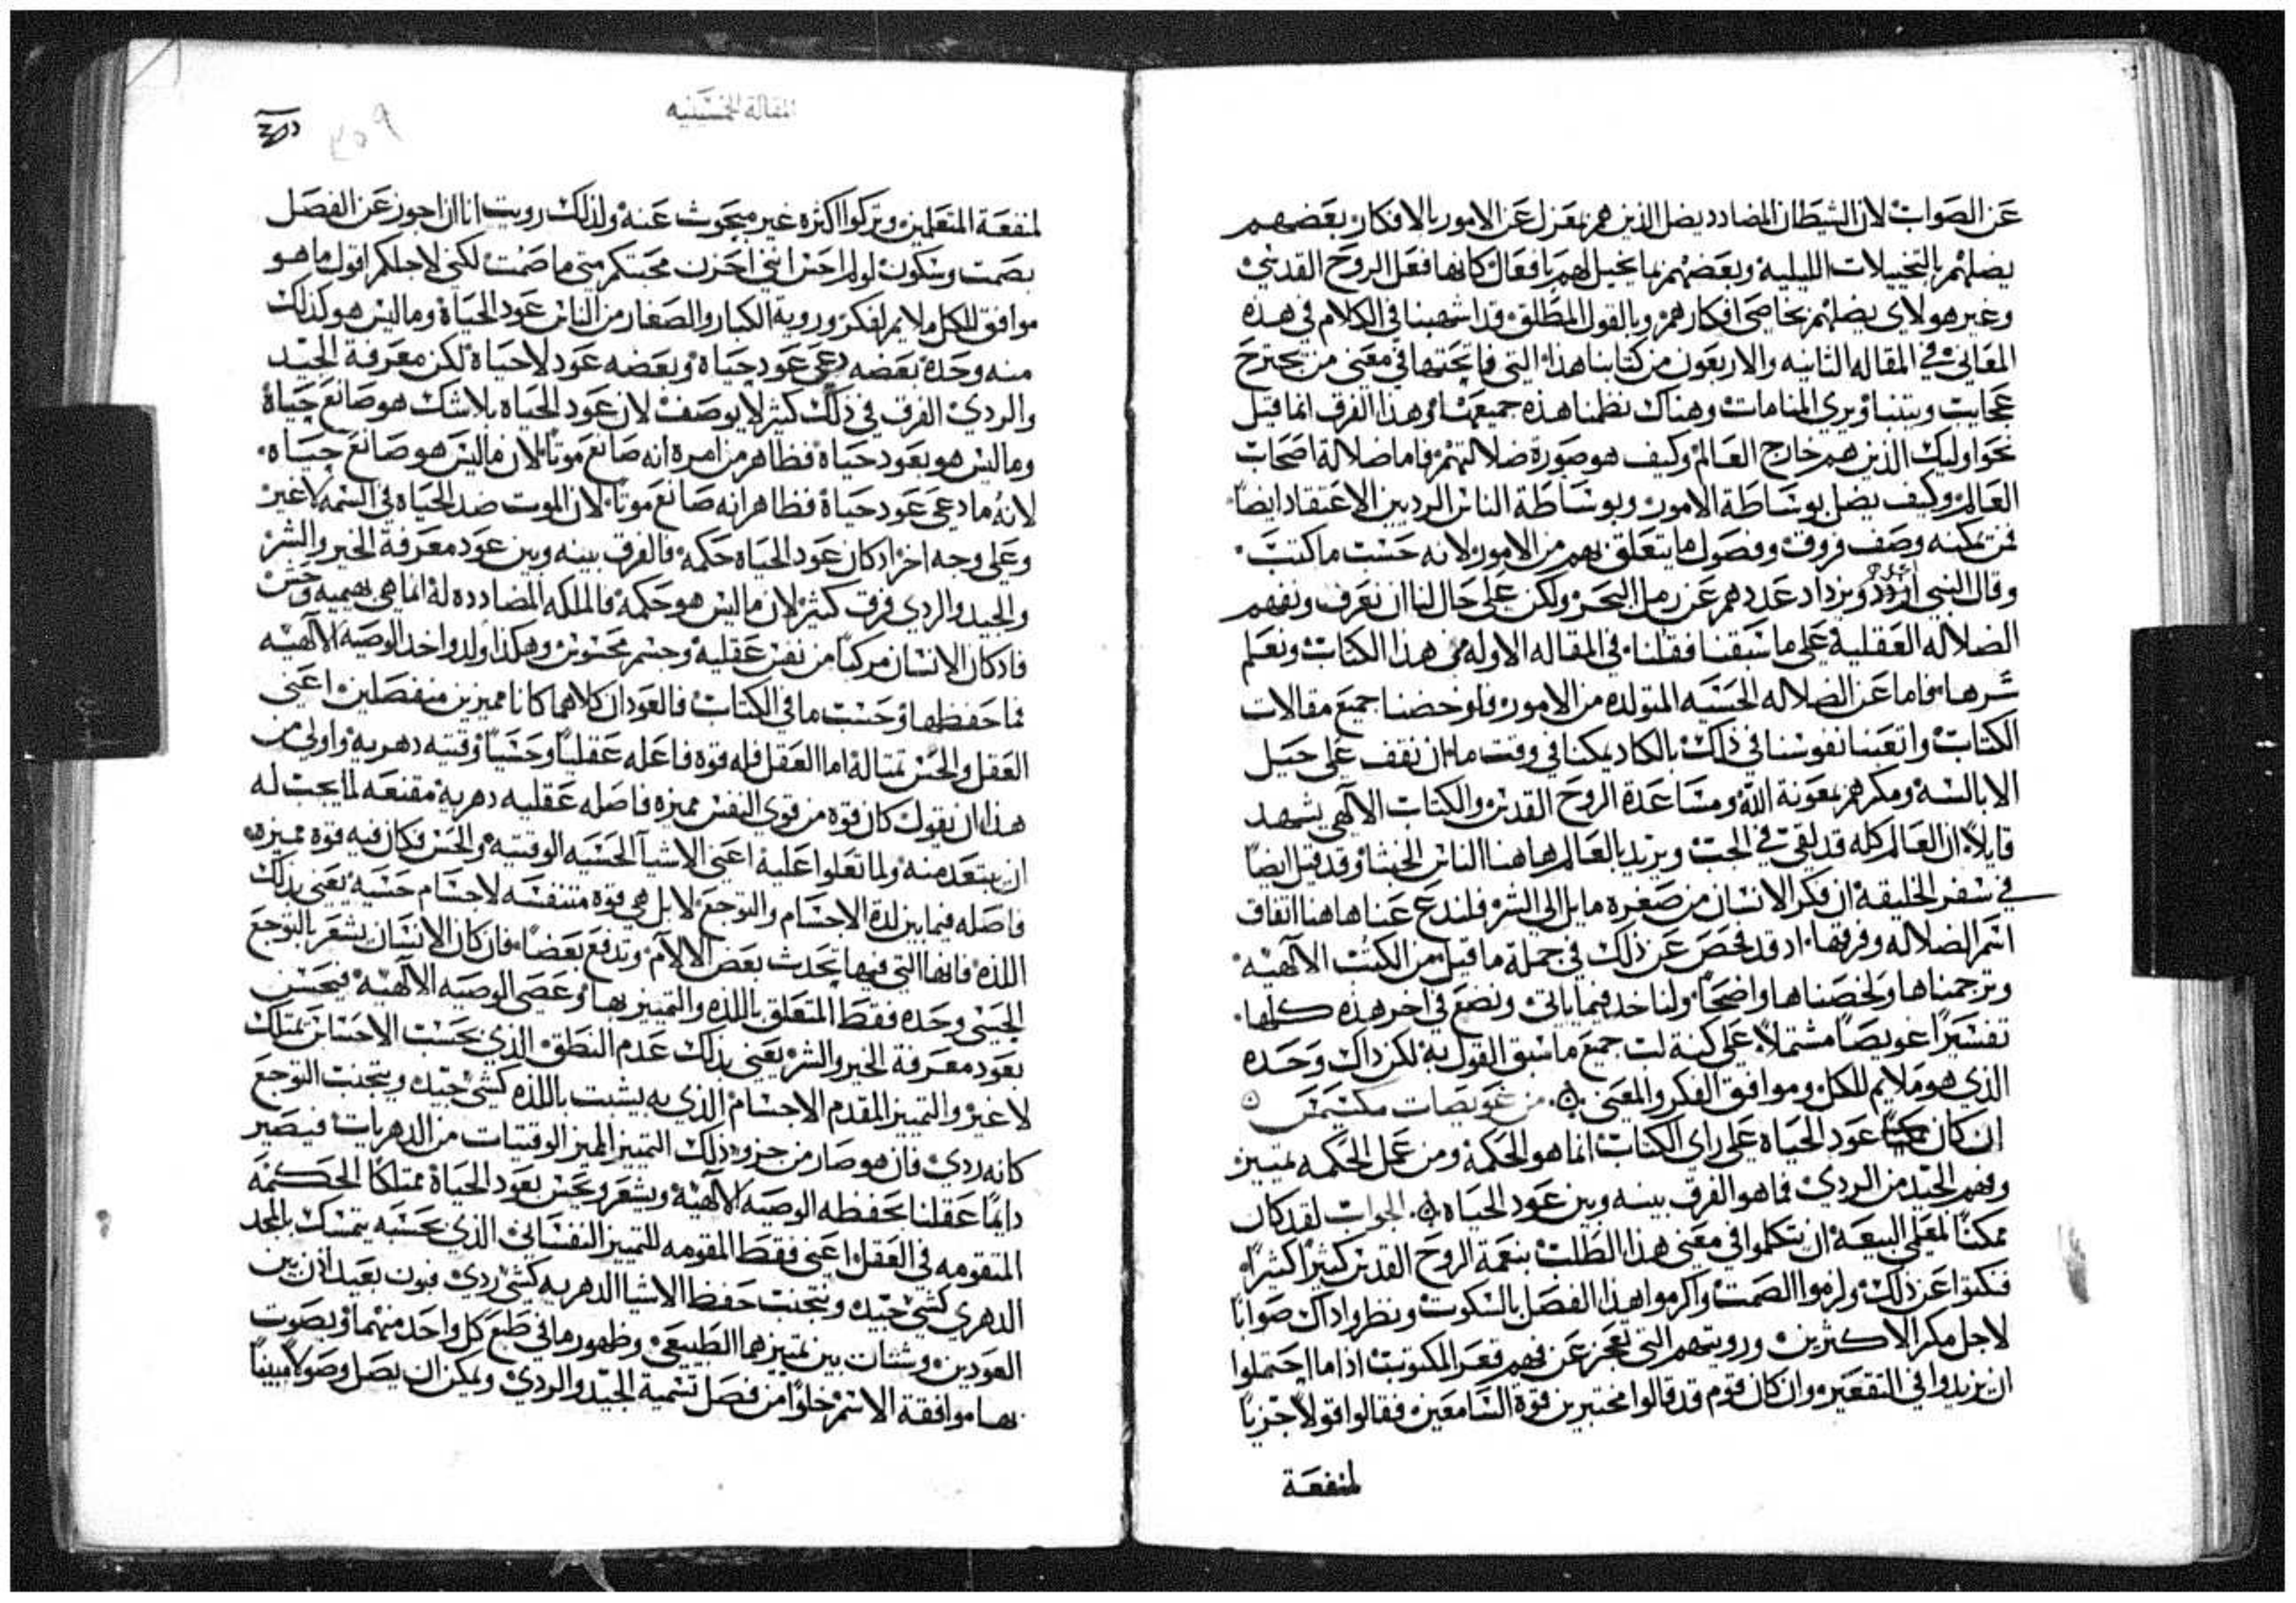 عن الصواب لان الشيطان المضادد يضل الذين هم بمعزل عن الامور بالافكار بعضهم
يضلهم بالتخييلات الليلية وبعضهم بما يخيل لهم بافعال كانها فعل الروح القدسي
وغير هولاى يضلهم بخاصى افكارهم وبالقول المطلق قد اشهبنا في الكلام في هذه
المعاني في المقاله الثانيه والاربعون من كتابنا هذا التي فاتحتها في معنى من يجترح
عجايب ويتنبا ويرى المنامات وهناك نظمنا هذه جميعها وهذا الفرق انما قيل
نحو اوليك الذين هم خارج العالم وكيف هو صورة ضلالتهم فاما ضلالة اصحاب
العالم وكيف يضل بوساطة الامور وبوساطة الناس الرديين الاعتقاد ايضا
فمن يمكنه وصف فروق وفصول ما يتعلق بهم من الامور لانه حسب ما كتب
وقال النبي داوود ويزداد عددهم عن رمل البحر ولكن على حال لنا ان نعرف ونفهم
الضلاله العقلية على ما سبقنا فقلنا في المقاله الاوله من هذا الكتاب ونعلم
شرها فاما عن الضلاله الحسيه المتولده من الامور فلو خضنا جميع مقالات
الكتاب واتعبنا نفوسنا في ذلك بالكاد يمكنا في وقت ما ان نقف على حيل
الابالسه ومكرهم بمعونة الله ومساعدة الروح القدس والكتاب الالهي يشهد
قايلا ان العالم كله قد لقي في الجب ويريد بالعالم هاهنا الناس الخبثا وقد قيل ايضا
في سفر الخليقه ان فكر الانسان من صغره مايل الى الشر فلندع عنا هاهنا اتفاق
اسم الضلاله وفرقها اذ قد فحص عن ذلك في جملة ما قيل من الكتب الالهيه
وترجمناها ولخصناها واضحا ولناخد فيما ياتي ونضع في اخر هذه كلها
تفسيرا عويصا مشتملا على كنه لب جميع ما سبق القول به لكن ذاك وحده
الذي هو ملايم للكل وموافق الفكر والمعنى من عويصات مكسيمس
ان كان عود الحياه على راى الكتاب انما هو الحكمه ومن عمل الحكمه تمييز
وفهم الجيد من الردي فما هو الفرق بينه وبين عود الحياه الجواب لقد كان
ممكنا لمعلمي البيعه ان يتكلموا في معنى هذا الطلب بنعمة الروح القدس كثيرا كثيرا
فنكبوا عن ذلك ولزموا الصمت واكرموا هذا الفصل بالسكوت ونظروا ذاك صوابا
لاجل مكر الاكثرين ورويتهم التي تعجز عن فهم قعر المكتوب اذا ما احتملوا
ان يزيدوا في التقعير وان كان قوم قد قالوا مختبرين قوة السامعين فقالوا قولا جزيا
لمنفعة
المقالة الخمسينيه
٣٥٩
لمنفعة المتعلمين وتركوا اكثره غير مبحوث عنه ولذلك رويت انا ان اجوز عن الفصل
بصمت وسكون لو لم احس انني احزن محبتكم متى ما صمت لكني لاجلكم اقول ما هو
موافق للكل ملايم لفكر وروية الكبار والصغار من الناس عود الحياة وما ليس هو كذلك
منه وحده بعضه دعى عود حياة وبعضه عود لاحياة لكن معرفة الجيد
والردي الفرق في ذلك كثير لا يوصف لان عود الحياه بلا شك هو صانع حياة
وما ليس هو بعود حياة فظاهر من امره انه صانع موتا لان ما ليس هو صانع حياه
لانه ما دعى عود حياة فظاهر انه صانع موتا لان الموت ضد الحياه في السمه لا غير
وعلى وجه اخر اذ كان عود الحياه حكمه فالفرق بينه وبين عود معرفة الخير والشر
والجيد والردي فرق كثير لان ما ليس هو حكمه فالملكه المضادده له انما هي بهيميه وحس
فاذ كان الانسان مركبا من نفس عقليه وجسم محسوس وهكذا ولد واخذ الوصيه الالهيه
فما حفظها وحسب ما في الكتاب فالعودان كلاهما كانا مميزين منفصلين اعني
العقل والحس تمتاله اما العقل فله قوه فاعله عقليا وحسيا وقتيه دهريه واولى من
هذا ان نقول كان قوه من قوى النفس مميزه فاصله عقليه دهريه مقنعه لما يجب له
ان يبتعد منه ولما تعلوا عليه اعني الاشيا الحسيه الوقتيه والحس فكان فيه قوه مميزه
فاصله فيما بين لدة الاجسام والتوجع لا بل هي قوه متنفسه لاجسام حسيه يعني بذلك
اللذه فانها التي فيها تحدث بعض الالام وتدفع بعضا فان كان الانسان يشعر بالتوجع
الحسي وحده فقط المتعلق باللذه والتمييز بها وعصى الوصيه الالهيه فيحسن
بعود معرفة الخير والشر يعني بذلك عدم النطق الذي بحسب الاحساس تمتلك
لا غير والتمييز المقدم الاجسام الذي به يشبت باللذه كشي جيد ويتجنب التوجع
كانه ردي فان هو صار من جزو ذلك التمييز المميز الوقتيات من الدهريات فيصير
دايما عقلنا بحفظه الوصيه الالهيه ويشعر ويحس بعود الحياة ممتلكا الحكمه
المتقومه في العقل اعني فقط المقومه للتمييز النفساني الذي بحسبه يتمسك بالمجد
الدهري كشي جيد ونتجنب حفظ الاشيا الدهريه كشي ردي فبون بعيد اذن بين
العودين وشتات بين تمييزهما الطبيعي وظهورها في طبع كل واحد منهما وبصوت
بها موافقة الاسم خلوا من فصل تسمية الجيد والردي ويمكن ان يصل وصولا مبينا